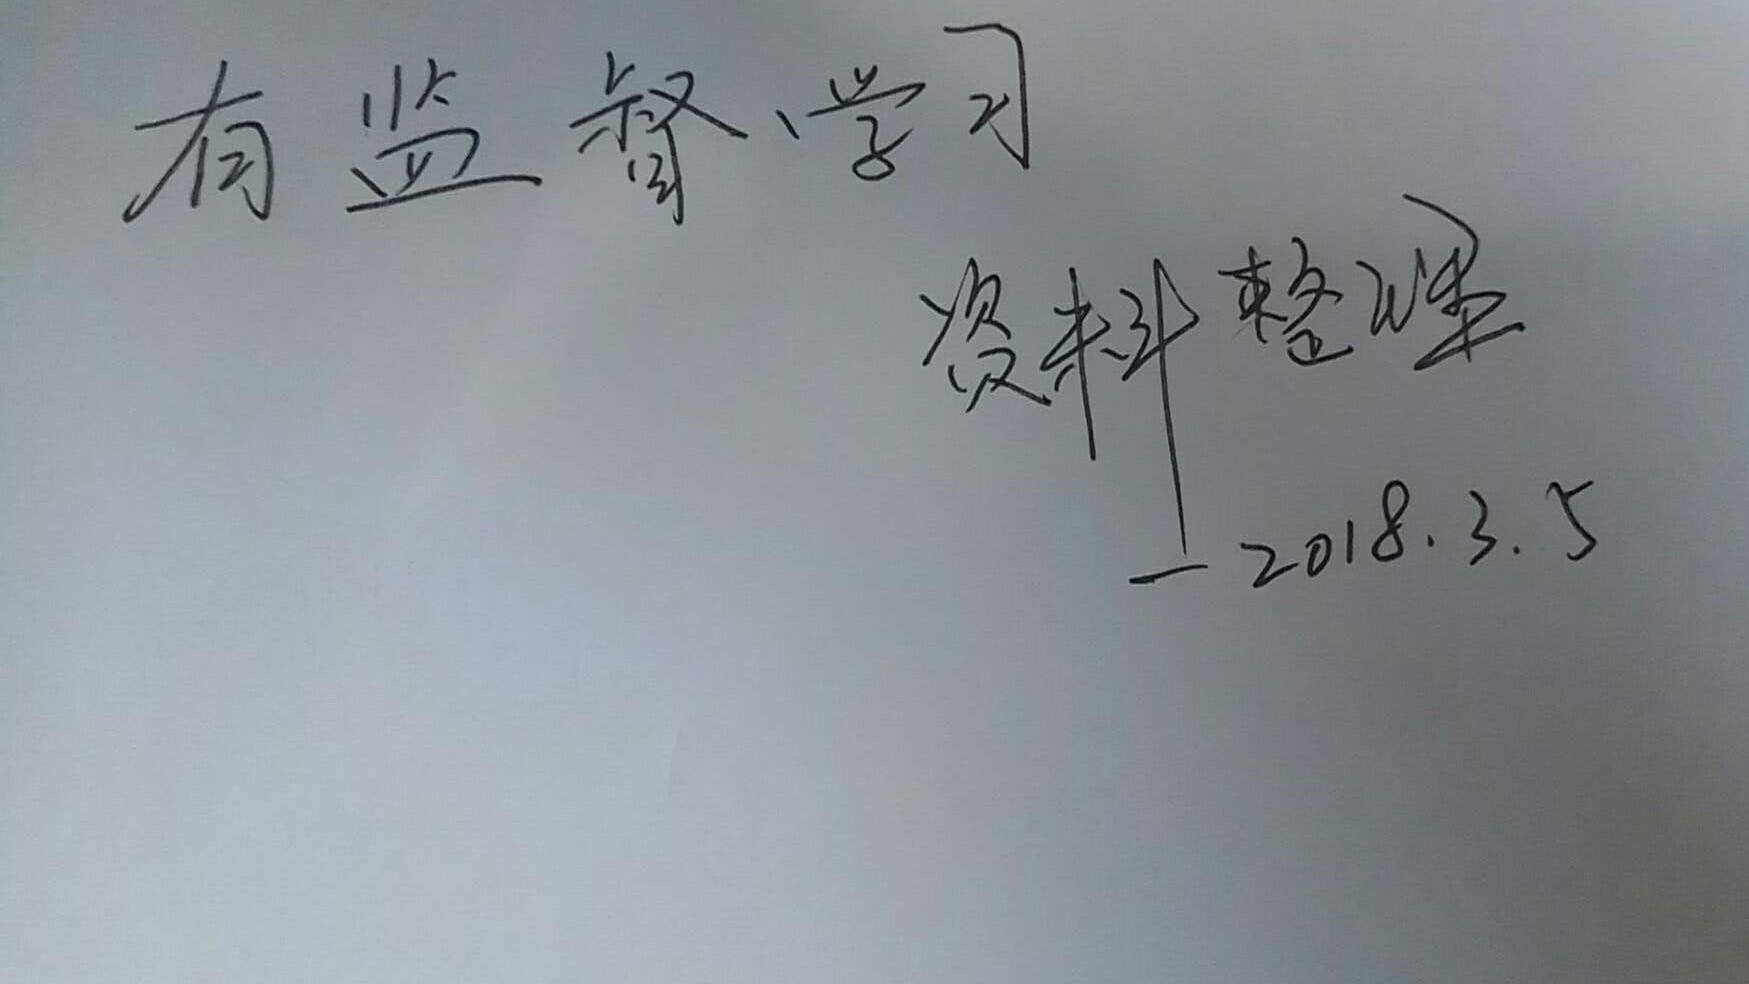 有监督学习
资料整理
—2018.3.5